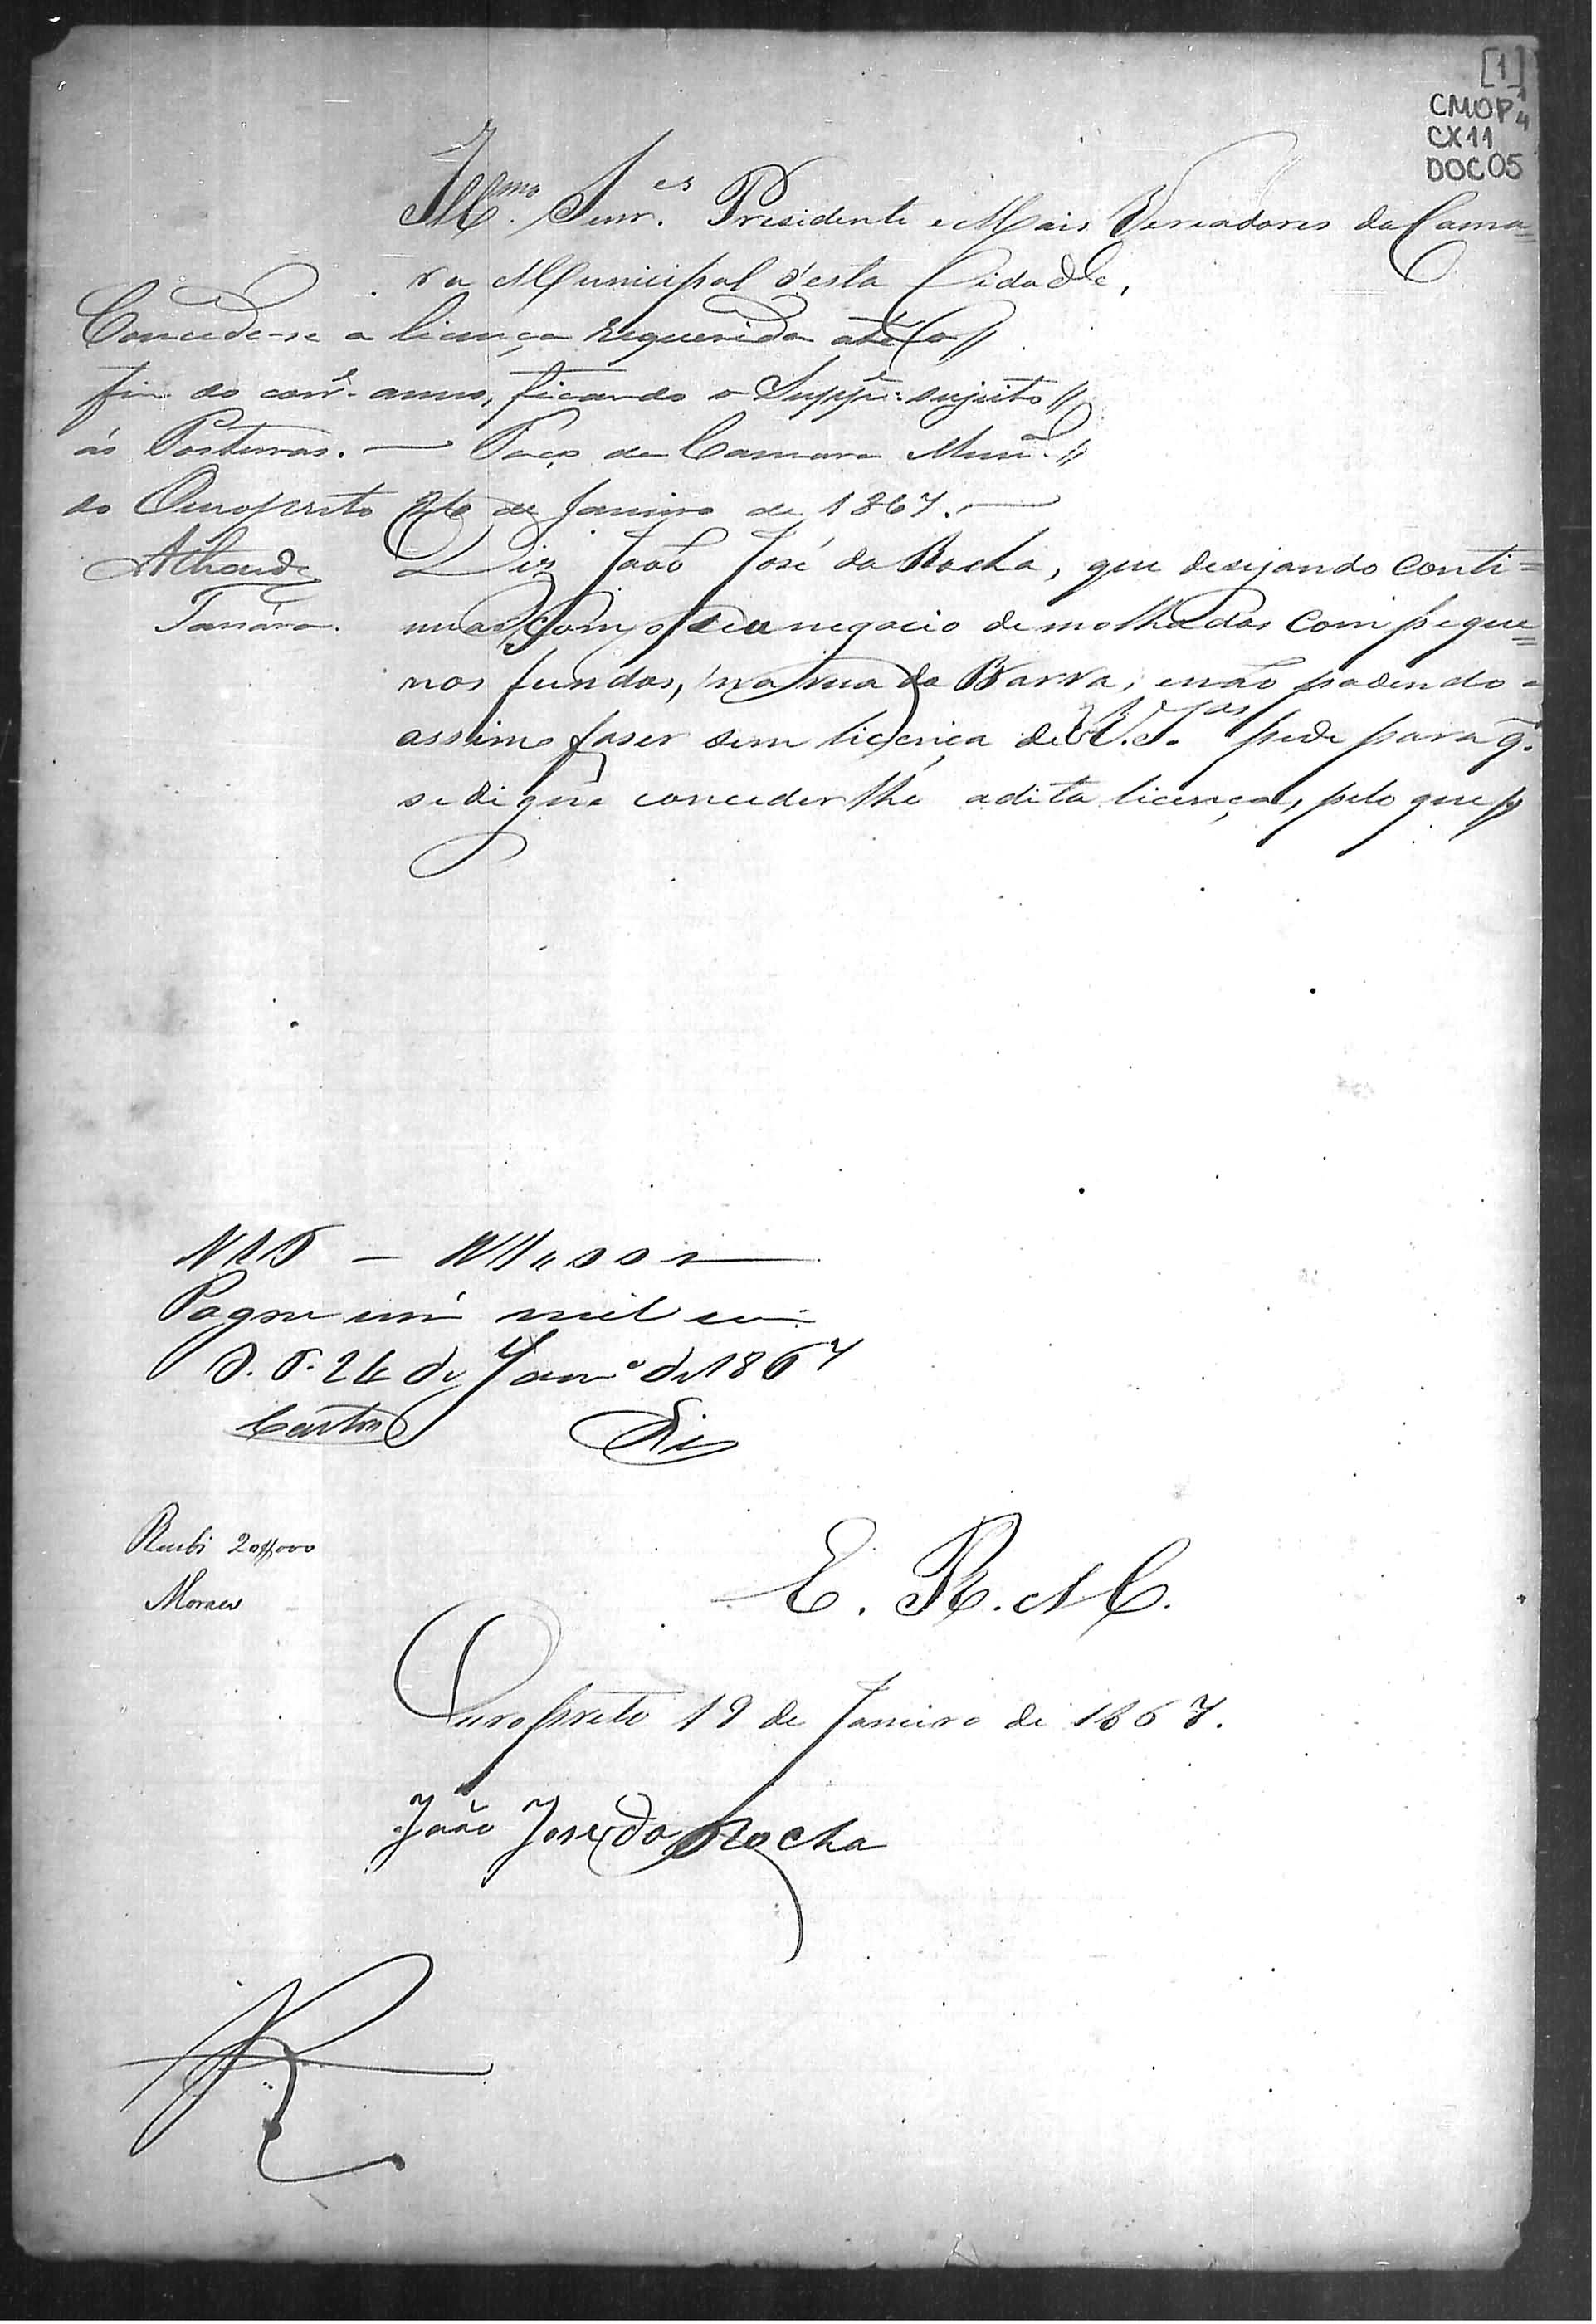 [1]
CMOP 1/4
CX11
DOC05
Illmo. Senr.es Presidente e Mais Vereadores da Cama=
ra Municipal d'esta Cidade,
Concede-se a licença requerida até o //
fim do corr.e anno, ficando o Supp.e sujeito //
ás Posturas. — Paço da Camara Mun.al //
do Ouropreto 26 de Janeiro de 1867. —
Diz João José da Rocha, que desejando conti=
nuar com o seu negocio de molhados com peque=
nos fundos, na rua da Barra, e não podendo o
assim faser sem licença de V.V. S.as pede para q.
se digne conceder lhe a dita licença, pelo que //
Pagou um mil reis
O. P. 26 de Jan.o de 1867
Castro
Recebi 20$000
Moraes
E. R. M.
Ouropreto 19 de Janeiro de 1867.
João José da Rocha